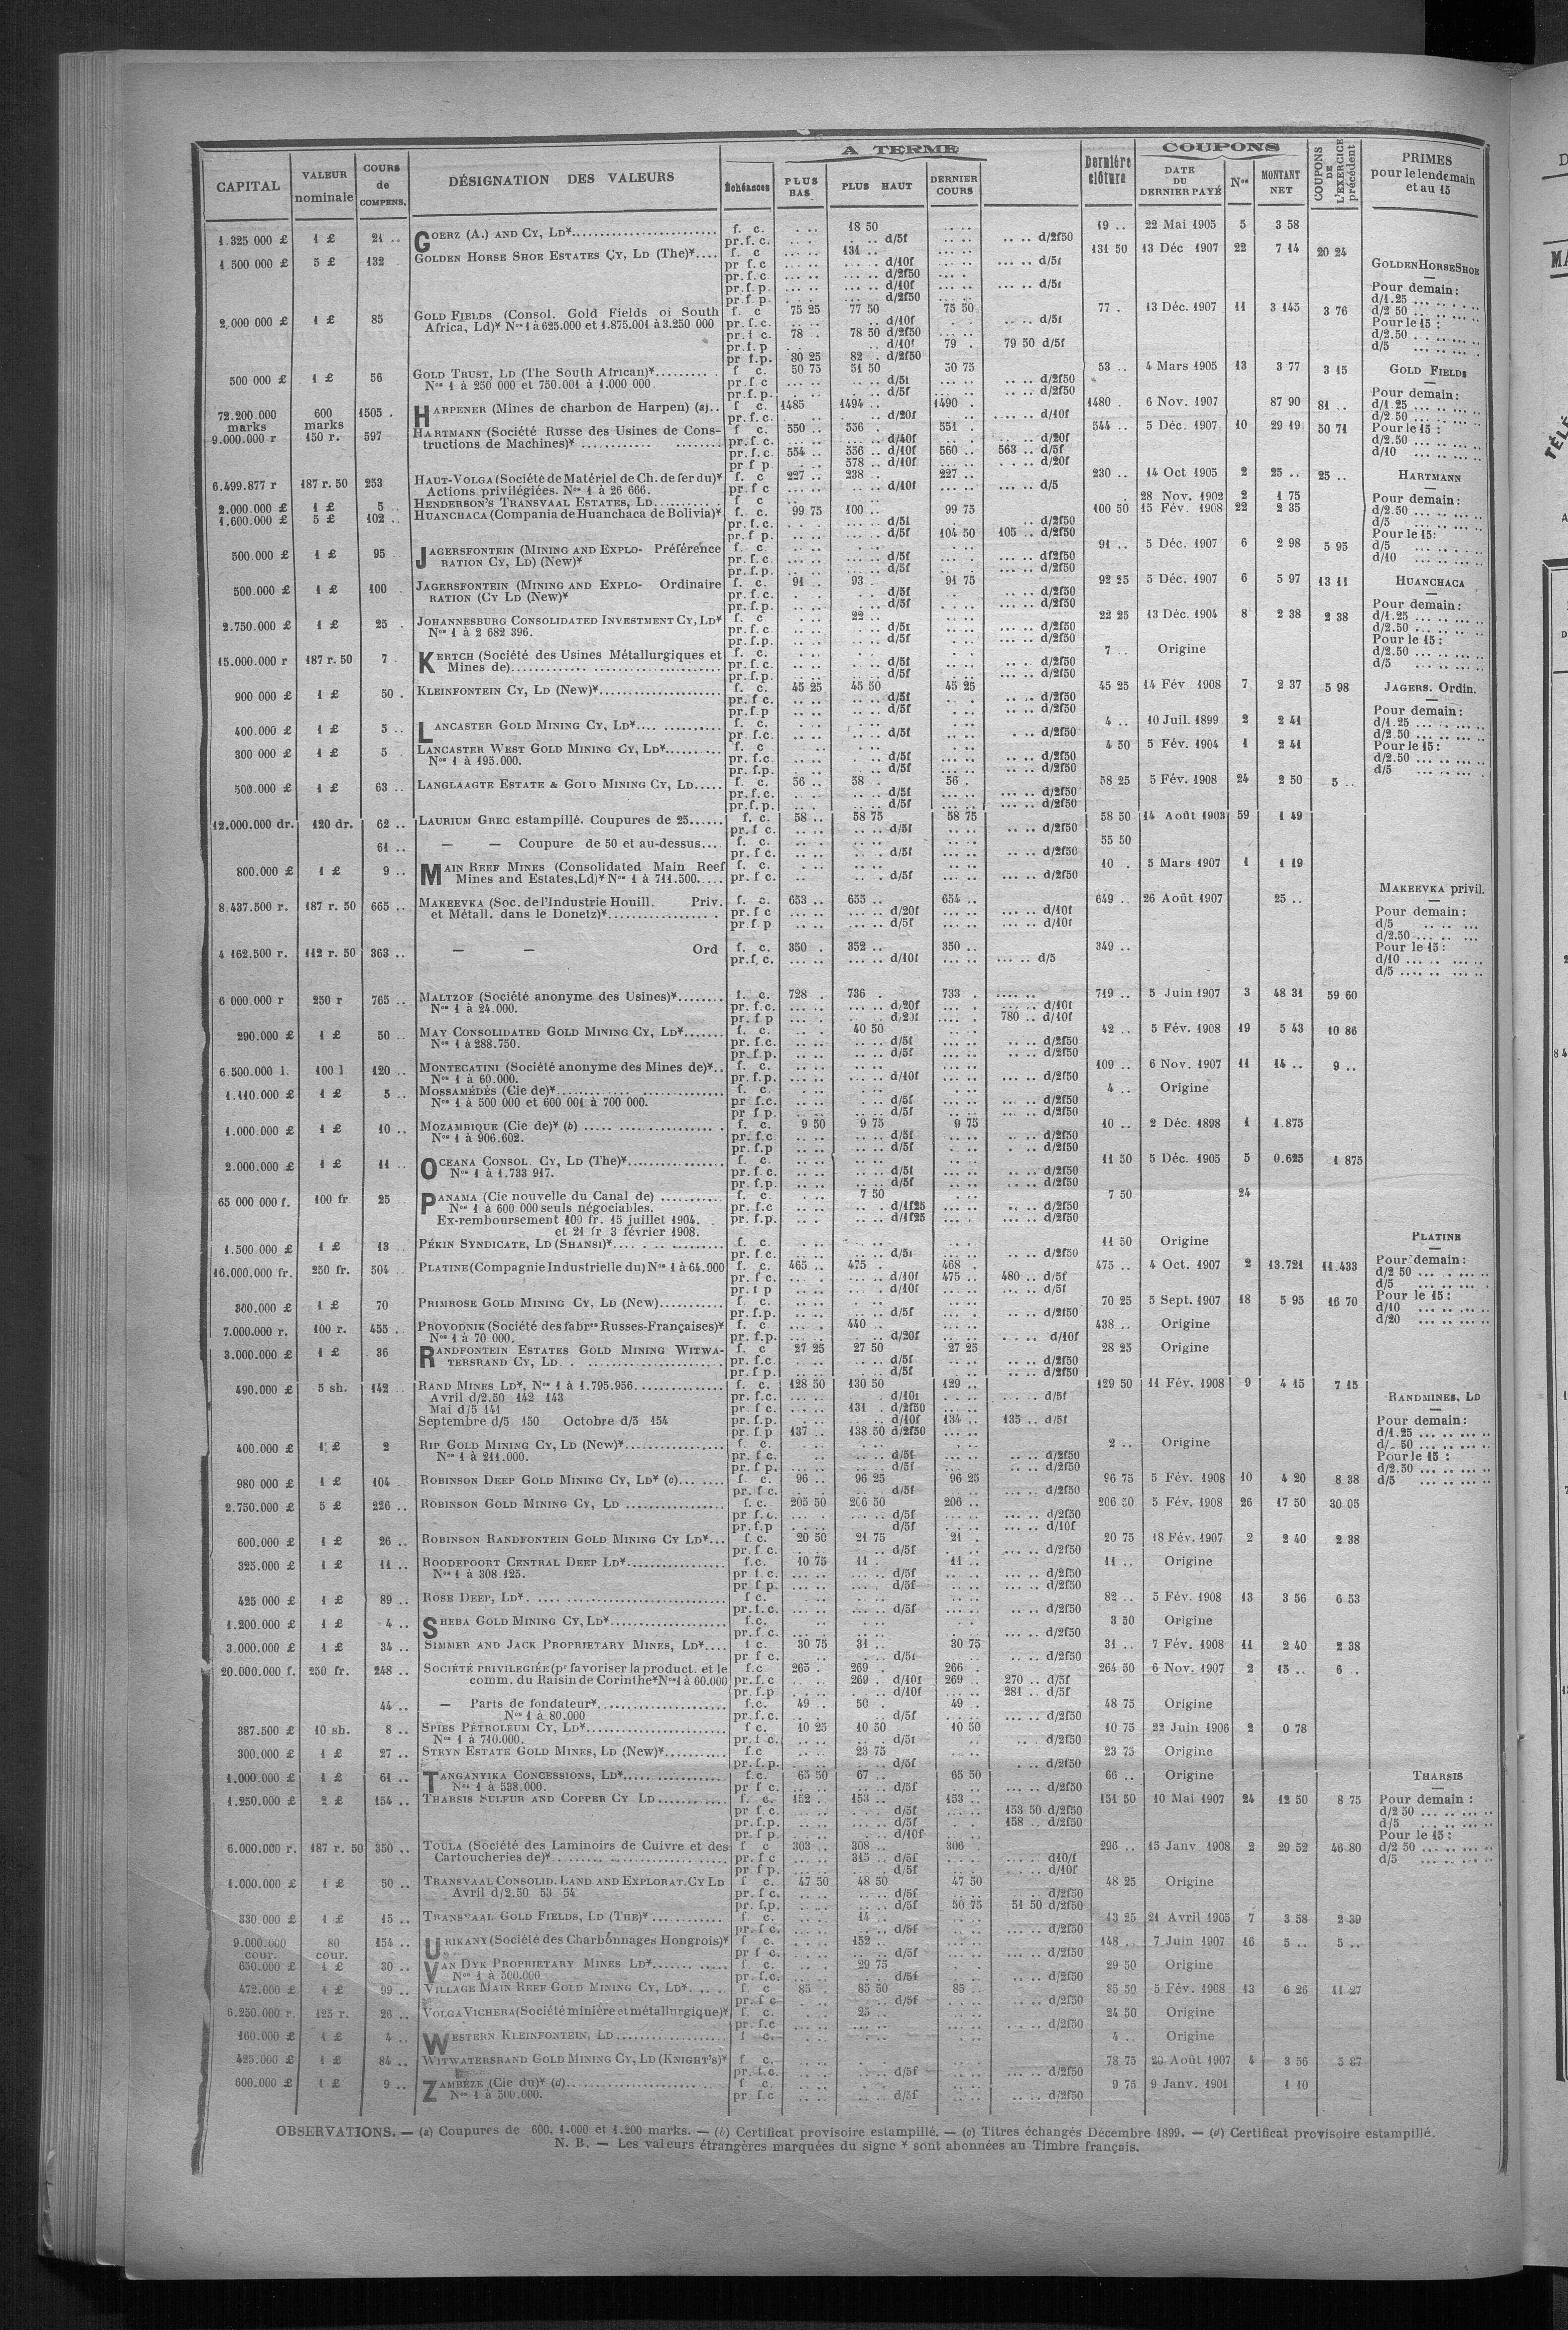 A TERME
COUPONS
CAPITAL | VALEUR nominale | COURS de COMPENS. | DÉSIGNATION DES VALEURS | Échéances | PLUS BAS | PLUS HAUT | DERNIER COURS | Dernière clôture | DATE DU DERNIER PAYÉ | Nos | MONTANT NET | COUPONS DE L'EXERCICE précédent | PRIMES pour le lendemain et au 15
1.325 000 £ | 1 £ | 21 .. | GOERZ (A.) AND CY, LD* | f. c. | 18 50 | 19 .. | 22 Mai 1905 | 5 | 3 58
pr. f. c. | d/5f | d/2f50
1 500 000 £ | 5 £ | 132 | GOLDEN HORSE SHOE ESTATES CY, LD (The)* | f. c | 131 .. | 131 50 | 13 Déc 1907 | 22 | 7 14 | 20 24
pr f. c | d/10f | d/5f
pr f. c | d/2f50
pr. f. p. | d/10f | d/5f
pr f. p. | d/2f50
2.000 000 £ | 1 £ | 85 | GOLD FIELDS (Consol. Gold Fields of South | f. c | 75 25 | 77 50 | 75 50 | 77 . | 13 Déc. 1907 | 11 | 3 145 | 3 76
Africa, Ld)* Nos 1 à 625.000 et 1.875.001 à 3.250 000 | pr. f. c. | d/10f | d/5f
pr. f c. | 78 . | 78 50 d/2f50
pr. f. p | d/10f | 79 . | 79 50 d/5f
pr f.p. | 80 25 | 82 . d/2f50
500 000 £ | 1 £ | 56 | GOLD TRUST, LD (The South African)* | f c. | 50 75 | 51 50 | 50 75 | 53 .. | 4 Mars 1905 | 13 | 3 77 | 3 15
Nos 1 à 250 000 et 750.001 à 1.000 000 | pr. f. c | d/5f | d/2f50
pr. f. p. | d/5f | d/2f50
72.200.000 marks | 600 marks | 1505 . | HARPENER (Mines de charbon de Harpen) (a).. | f c. | 1485 | 1494 .. | 1490 . | 1480 . | 6 Nov. 1907 | 87 90 | 81 ..
pr. f. c. | d/20f | d/10f
9.000.000 r | 150 r. | 597 | HARTMANN (Société Russe des Usines de Cons- | f c. | 550 .. | 556 . | 551 . | 544 .. | 5 Déc. 1907 | 10 | 29 19 | 50 71
tructions de Machines)* | pr. f. c. | d/40f | d/20f
pr. f. c. | 554 .. | 556 .. d/10f | 560 .. | 563 .. d/5f
pr f p | 578 .. d/10f | d/20f
6.499.877 r | 187 r. 50 | 253 | HAUT-VOLGA (Société de Matériel de Ch. de fer du)* | f. c | 227 .. | 238 .. | 227 .. | 230 .. | 14 Oct 1905 | 2 | 25 .. | 25 ..
Actions privilégiées. Nos 1 à 26 666. | pr. f c | d/10f | d/5
2.000.000 £ | 1 £ | 5 .. | HENDERSON'S TRANSVAAL ESTATES, LD | f c | 28 Nov. 1902 | 2 | 1 75
1.600.000 £ | 5 £ | 102 .. | HUANCHACA (Compania de Huanchaca de Bolivia)* | f. c. | 99 75 | 100 .. | 99 75 | 100 50 | 15 Fév. 1908 | 22 | 2 35
pr. f. c. | d/5f | d/2f50
pr. f p. | d/5f | 104 50 | 105 .. d/2f50
500.000 £ | 1 £ | 95 | JAGERSFONTEIN (MINING AND EXPLO- Préférence | f. c. | 91 .. | 5 Déc. 1907 | 6 | 2 98 | 5 95
RATION CY, LD) (New)* | pr. f. c. | d/5f | df2f50
pr. f. p. | d/5f | d/2f50
500.000 £ | 1 £ | 100 | JAGERSFONTEIN (MINING AND EXPLO- Ordinaire | f. c. | 91 .. | 93 . | 91 75 | 92 25 | 5 Déc. 1907 | 6 | 5 97 | 13 11
RATION (CY LD (New)* | pr. f. c. | d/5f | d/2f50
pr. f. p. | d/5f | d/2f50
2.750.000 £ | 1 £ | 25 . | JOHANNESBURG CONSOLIDATED INVESTMENT CY, LD* | f. c | 22 .. | 22 25 | 13 Déc. 1904 | 8 | 2 38 | 2 38
Nos 1 à 2 682 396. | pr. f. c | d/5f | d/2f50
pr. f. p. | d/5f | d/2f50
15.000.000 r | 187 r. 50 | 7 . | KERTCH (Société des Usines Métallurgiques et | f. c. | 7 .. | Origine
Mines de) | pr. f. c. | d/5f | d/2f50
pr. f. p. | d/5f | d/2f50
900 000 £ | 1 £ | 50 . | KLEINFONTEIN CY, LD (New)* | f. c. | 45 25 | 45 50 | 45 25 | 45 25 | 14 Fév 1908 | 7 | 2 37 | 5 98
pr. f c. | d/5f | d/2f50
pr. f. p | d/5f | d/2f50
400.000 £ | 1 £ | 5 .. | LANCASTER GOLD MINING CY, LD* | f. c. | 4 .. | 10 Juil. 1899 | 2 | 2 41
pr. f. c. | d/5f | d/2f50
300 000 £ | 1 £ | 5 . | LANCASTER WEST GOLD MINING CY, LD* | f. c | 4 50 | 5 Fév. 1904 | 1 | 2 41
Nos 1 à 195.000. | pr. f. c | d/5f | d/2f50
pr. f. p. | d/5f | d/2f50
500.000 £ | 1 £ | 63 .. | LANGLAAGTE ESTATE & GOLD MINING CY, LD | f. c. | 56 .. | 58 . | 56 . | 58 25 | 5 Fév. 1908 | 24 | 2 50 | 5 ..
pr. f. c. | d/5f | d/2f50
pr. f. p. | d/5f | d/2f50
12.000.000 dr. | 120 dr. | 62 .. | LAURIUM GREC estampillé. Coupures de 25 | f. c. | 58 .. | 58 75 | 58 75 | 58 50 | 14 Août 1903 | 59 | 1 49
pr. f c. | d/5f | d/2f50
61 .. | — — Coupure de 50 et au-dessus | f. c. | 55 50
pr. f c. | d/5f | d/2f50
800.000 £ | 1 £ | 9 .. | MAIN REEF MINES (Consolidated Main Reef | f. c. | 10 . | 5 Mars 1907 | 1 | 1 19
Mines and Estates, Ld)* Nos 1 à 711.500 | pr. f c. | d/5f | d/2f50
8.437.500 r. | 187 r. 50 | 665 .. | MAKEEVKA (Soc. de l'Industrie Houill. Priv. | f. c. | 653 .. | 655 .. | 654 .. | 649 .. | 26 Août 1907 | 25 ..
et Métall. dans le Donetz)* | pr. f c | d/20f | d/10f
pr. f p | d/5f | d/10f
4 162.500 r. | 112 r. 50 | 363 .. | — — Ord | f. c. | 350 . | 352 .. | 350 .. | 349 ..
pr. f. c. | d/10f | d/5
6 000.000 r | 250 r | 765 .. | MALTZOF (Société anonyme des Usines)* | f. c. | 728 . | 736 . | 733 . | 719 .. | 5 Juin 1907 | 3 | 48 31 | 59 60
Nos 1 à 24.000. | pr. f. c. | d/20f | d/10f
pr. f p | d/20f | 780 .. d/10f
290.000 £ | 1 £ | 50 .. | MAY CONSOLIDATED GOLD MINING CY, LD* | f. c. | 40 50 | 42 .. | 5 Fév. 1908 | 19 | 5 43 | 10 86
Nos 1 à 288.750. | pr. f. c. | d/5f | d/2f50
pr. f. p. | d/5f | d/2f50
6.500.000 l. | 100 l | 120 .. | MONTECATINI (Société anonyme des Mines de)* | f. c. | 109 .. | 6 Nov. 1907 | 11 | 14 .. | 9 ..
Nos 1 à 60.000. | pr. f. p. | d/10f | d/2f50
1.110.000 £ | 1 £ | 5 .. | MOSSAMÉDÈS (Cie de)* | f. c. | 4 .. | Origine
Nos 1 à 500 000 et 600 001 à 700 000. | pr f. c. | d/5f | d/2f50
pr f. p. | d/5f | d/2f50
1.000.000 £ | 1 £ | 10 .. | MOZAMBIQUE (Cie de)* (b) | f. c. | 9 50 | 9 75 | 9 75 | 10 .. | 2 Déc. 1898 | 1 | 1.875
Nos 1 à 906.602. | pr. f. c | d/5f | d/2f50
pr. f. p | d/5f | d/2f50
2.000.000 £ | 1 £ | 11 .. | OCEANA CONSOL. CY, LD (The)* | f. c. | 11 50 | 5 Déc. 1905 | 5 | 0.625 | 1 875
Nos 1 à 1.733 917. | pr. f. c. | d/5f | d/2f50
pr. f. p. | d/5f | d/2f50
65 000 000 f. | 100 fr. | 25 | PANAMA (Cie nouvelle du Canal de) | f. c. | 7 50 | 7 50 | 24
Nos 1 à 600.000 seuls négociables. | pr. f. c | d/1f25 | d/2f50
Ex-remboursement 100 fr. 15 juillet 1904. | pr. f. p. | d/1f25 | d/2f50
et 21 fr 3 février 1908.
1.500.000 £ | 1 £ | 13 .. | PÉKIN SYNDICATE, LD (SHANSI)* | f. c. | 11 50 | Origine
pr. f. c. | d/5f | d/2f50
16.000.000 fr. | 250 fr. | 504 .. | PLATINE (Compagnie Industrielle du) Nos 1 à 64.000 | f. c. | 465 .. | 475 . | 468 . | 475 .. | 4 Oct. 1907 | 2 | 13.721 | 11.433
pr f c. | d/10f | 475 .. | 480 .. d/5f
pr. f p | d/10f | d/5f
300.000 £ | 1 £ | 70 | PRIMROSE GOLD MINING CY, LD (New) | f. c. | 70 25 | 5 Sept. 1907 | 18 | 5 95 | 16 70
pr. f. p. | d/5f | d/2f50
7.000.000 r. | 100 r. | 455 .. | PROVODNIK (Société des fabres Russes-Françaises)* | f. c | 440 .. | 438 .. | Origine
Nos 1 à 70 000. | pr. f. p. | d/20f | d/10f
3.000.000 £ | 1 £ | 36 | RANDFONTEIN ESTATES GOLD MINING WITWA- | f. c | 27 25 | 27 50 | 27 25 | 28 25 | Origine
TERSRAND CY, LD. | pr. f. c. | d/5f | d/2f50
pr. f p. | d/5f | d/2f50
490.000 £ | 5 sh. | 142 | RAND MINES LD*, Nos 1 à 1.795.956 | f. c. | 128 50 | 130 50 | 129 .. | 129 50 | 11 Fév. 1908 | 9 | 4 15 | 7 15
Avril d/2.50 142 143 | pr. f. c. | d/10f | d/5f
Mai d/5 141 | pr f c. | 131 . d/2f50
Septembre d/5 150 Octobre d/5 154 | pr. f. p. | d/10f | 134 .. | 135 .. d/5f
pr. f. p | 137 .. | 138 50 d/2f50
400.000 £ | 1 £ | 2 | RIP GOLD MINING CY, LD (New)* | f. c. | 2 .. | Origine
Nos 1 à 211.000. | pr. f c. | d/5f | d/2f50
pr. f p. | d/5f | d/2f50
980 000 £ | 1 £ | 104 .. | ROBINSON DEEP GOLD MINING CY, LD* (c) | f. c. | 96 .. | 96 25 | 96 25 | 96 75 | 5 Fév. 1908 | 10 | 4 20 | 8 38
pr. f c. | d/5f | d/2f50
2.750.000 £ | 5 £ | 226 .. | ROBINSON GOLD MINING CY, LD | f. c. | 205 50 | 206 50 | 206 .. | 206 50 | 5 Fév. 1908 | 26 | 17 50 | 30 05
pr f. c. | d/5f | d/2f50
pr. f. p | d/5f | d/10f
600.000 £ | 1 £ | 26 .. | ROBINSON RANDFONTEIN GOLD MINING CY LD* | f. c. | 20 50 | 21 75 | 21 . | 20 75 | 18 Fév. 1907 | 2 | 2 40 | 2 38
pr. f c. | d/5f | d/2f50
325.000 £ | 1 £ | 11 .. | ROODEPOORT CENTRAL DEEP LD* | f. c. | 10 75 | 11 . | 11 .. | 11 .. | Origine
Nos 1 à 308.125. | pr f. c. | d/5f | d/2f50
pr f p. | d/5f | d/2f50
425 000 £ | 1 £ | 89 .. | ROSE DEEP, LD* | f c. | 82 .. | 5 Fév. 1908 | 13 | 3 56 | 6 53
pr. f. c. | d/5f | d/2f50
1.200.000 £ | 1 £ | 4 .. | SHEBA GOLD MINING CY, LD* | f. c. | 3 50 | Origine
pr. f. c. | d/2f50
3.000.000 £ | 1 £ | 34 .. | SIMMER AND JACK PROPRIETARY MINES, LD* | f c. | 30 75 | 31 .. | 30 75 | 31 .. | 7 Fév. 1908 | 11 | 2 40 | 2 38
pr f c. | d/5f | d/2f50
20.000.000 f. | 250 fr. | 248 .. | SOCIÉTÉ PRIVILEGIÉE (pr favoriser la product. et le | f. c | 265 . | 269 . | 266 . | 264 50 | 6 Nov. 1907 | 2 | 15 .. | 6 .
comm. du Raisin de Corinthe* Nos 1 à 60.000 | pr. f. c | 269 . d/10f | 269 .. | 270 .. d/5f
pr. f. p | d/10f | 281 .. d/5f
44 .. | — Parts de fondateur* | f. c. | 49 .. | 50 . | 49 . | 48 75 | Origine
Nos 1 à 80.000 | pr. f. c. | d/5f | d/2f50
387.500 £ | 10 sh. | 8 .. | SPIES PÉTROLEUM CY, LD* | f c. | 10 25 | 10 50 | 10 50 | 10 75 | 22 Juin 1906 | 2 | 0 78
Nos 1 à 710.000. | pr. f c. | d/5f | d/2f50
300.000 £ | 1 £ | 27 .. | STEYN ESTATE GOLD MINES, LD (New)* | f. c | 23 75 | 23 75 | Origine
pr. f. p. | d/5f | d/2f50
1.000.000 £ | 1 £ | 61 .. | TANGANYIKA CONCESSIONS, LD* | f. c. | 65 50 | 67 .. | 65 50 | 66 .. | Origine
Nos 1 à 538.000. | pr f c. | d/5f | d/2f50
1.250.000 £ | 2 £ | 154 .. | THARSIS SULFUR AND COPPER CY LD | f. c. | 152 .. | 153 .. | 153 .. | 151 50 | 10 Mai 1907 | 24 | 12 50 | 8 75
pr f. c. | d/5f | 153 50 d/2f50
pr. f. p. | d/5f | 158 .. d/2f50
pr f p. | d/10f
6.000.000 r. | 187 r. 50 | 350 .. | TOULA (Société des Laminoirs de Cuivre et des | f c | 303 .. | 308 .. | 306 . | 296 .. | 15 Janv 1908 | 2 | 29 52 | 46 80
Cartoucheries de)* | pr. f c | 315 .. d/5f | d10/f
pr f p. | d/5f | d/10f
1.000.000 £ | 1 £ | 50 .. | TRANSVAAL CONSOLID. LAND AND EXPLORAT. CY LD | f c. | 47 50 | 48 50 | 47 50 | 48 25 | Origine
Avril d/2.50 53 54 | pr. f c. | d/5f | d/2f50
pr. f. p. | d/5f | 50 75 | 51 50 d/2f50
330 000 £ | 1 £ | 15 .. | TRANSVAAL GOLD FIELDS, LD (THE)* | f c. | 14 .. | 13 25 | 21 Avril 1905 | 7 | 3 58 | 2 39
pr. f c. | d/5f | d/2f50
9.000.000 cour. | 80 cour. | 154 .. | URIKANY (Société des Charbonnages Hongrois)* | f c. | 152 .. | 148 .. | 7 Juin 1907 | 16 | 5 .. | 5 ..
pr f c. | d/5f | d/2f50
650.000 £ | 1 £ | 30 .. | VAN DYK PROPRIETARY MINES LD* | f. c. | 29 75 | 29 50 | Origine
Nos 1 à 500.000 | pr. f. c. | d/5f | d/2f50
472.000 £ | 1 £ | 99 .. | VILLAGE MAIN REEF GOLD MINING CY, LD* | f. c | 85 . | 85 50 | 85 .. | 85 50 | 5 Fév. 1908 | 13 | 6 26 | 11 27
pr. f c | d/5f | d/2f50
6.250.000 r. | 125 r. | 26 .. | VOLGA VICHERA (Société minière et métallurgique)* | f c. | 25 .. | 24 50 | Origine
pr. f. c | d/2f50
160.000 £ | 1 £ | 4 .. | WESTERN KLEINFONTEIN, LD | f c. | 4 .. | Origine
425.000 £ | 1 £ | 84 .. | WITWATERSRAND GOLD MINING CY, LD (KNIGHT'S)* | f c. | 78 75 | 20 Août 1907 | 4 | 3 56 | 5 87
pr f. c. | d/5f | d/2f50
600.000 £ | 1 £ | 9 .. | ZAMBÈZE (Cie du)* (d) | f c. | 9 75 | 9 Janv. 1901 | 1 10
Nos 1 à 500.000. | pr f. c | d/5f | d/2f50
GOLDEN HORSE SHOE
Pour demain:
d/1.25
d/2 50
Pour le 15 :
d/2.50
d/5
GOLD FIELDS
Pour demain:
d/1.25
d/2.50
Pour le 15 :
d/2.50
d/10
HARTMANN
Pour demain:
d/2.50
d/5
Pour le 15:
d/5
d/10
HUANCHACA
Pour demain:
d/1.25
d/2.50
Pour le 15 :
d/2.50
d/5
JAGERS. Ordin.
Pour demain:
d/1.25
d/2.50
Pour le 15:
d/2.50
d/5
MAKEEVKA privil.
Pour demain:
d/5
d/2.50
Pour le 15:
d/10
d/5
PLATINE
Pour demain:
d/2 50
d/5
Pour le 15 :
d/10
d/20
RANDMINES, LD
Pour demain:
d/1.25
d/ 50
Pour le 15 :
d/2.50
d/5
THARSIS
Pour demain :
d/2 50
d/5
Pour le 15 :
d/2 50
d/5
OBSERVATIONS. — (a) Coupures de 600, 1.000 et 1.200 marks. — (b) Certificat provisoire estampillé. — (c) Titres échangés Décembre 1899. — (d) Certificat provisoire estampillé.
N. B. — Les valeurs étrangères marquées du signe * sont abonnées au Timbre français.